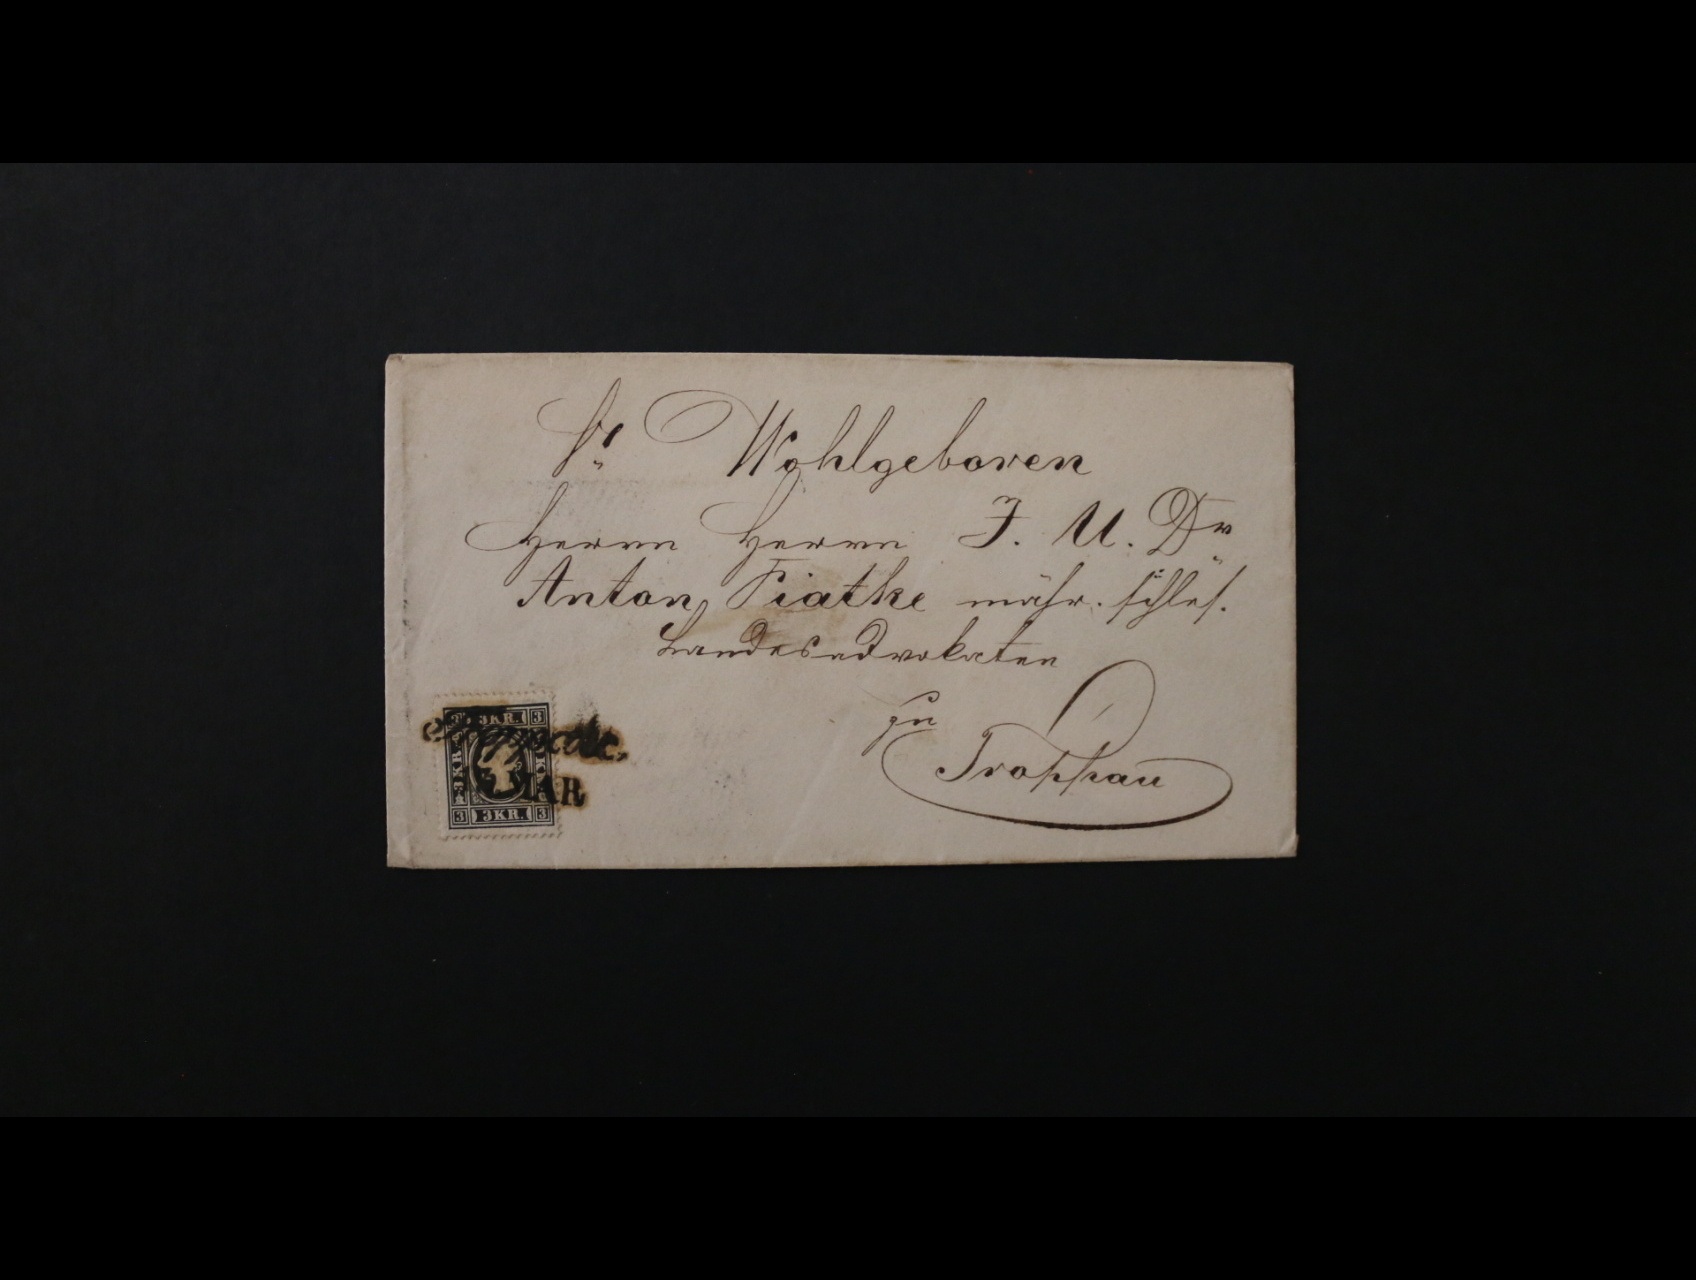 Sr Wohlgeboren
Herrn Herrn J. U. Dr
Anton Piatke mähr. schles.
Landesadvokaten
zu
Troppau
3 3 KR. 3
3 KR.
MAR
3 3 KR. 3